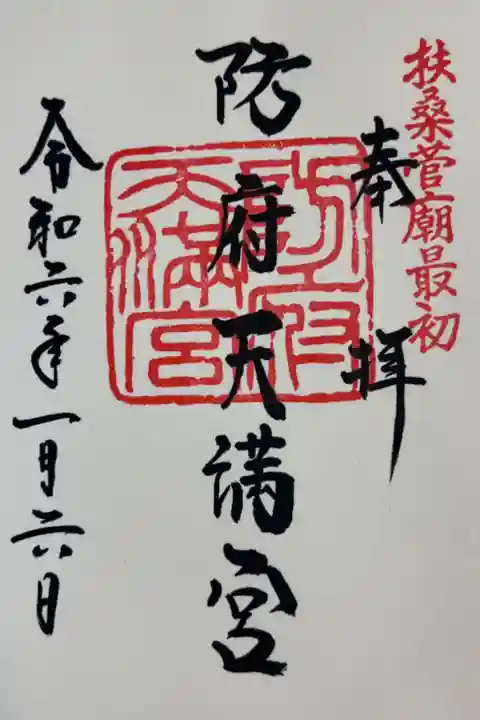 扶桑菅廟最初
奉拝
防府天満宮
防府
天満宮
令和六年一月六日